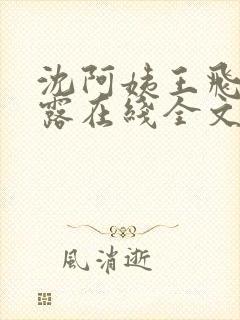 沈阿姨王飛
露在綫全文
風消逝